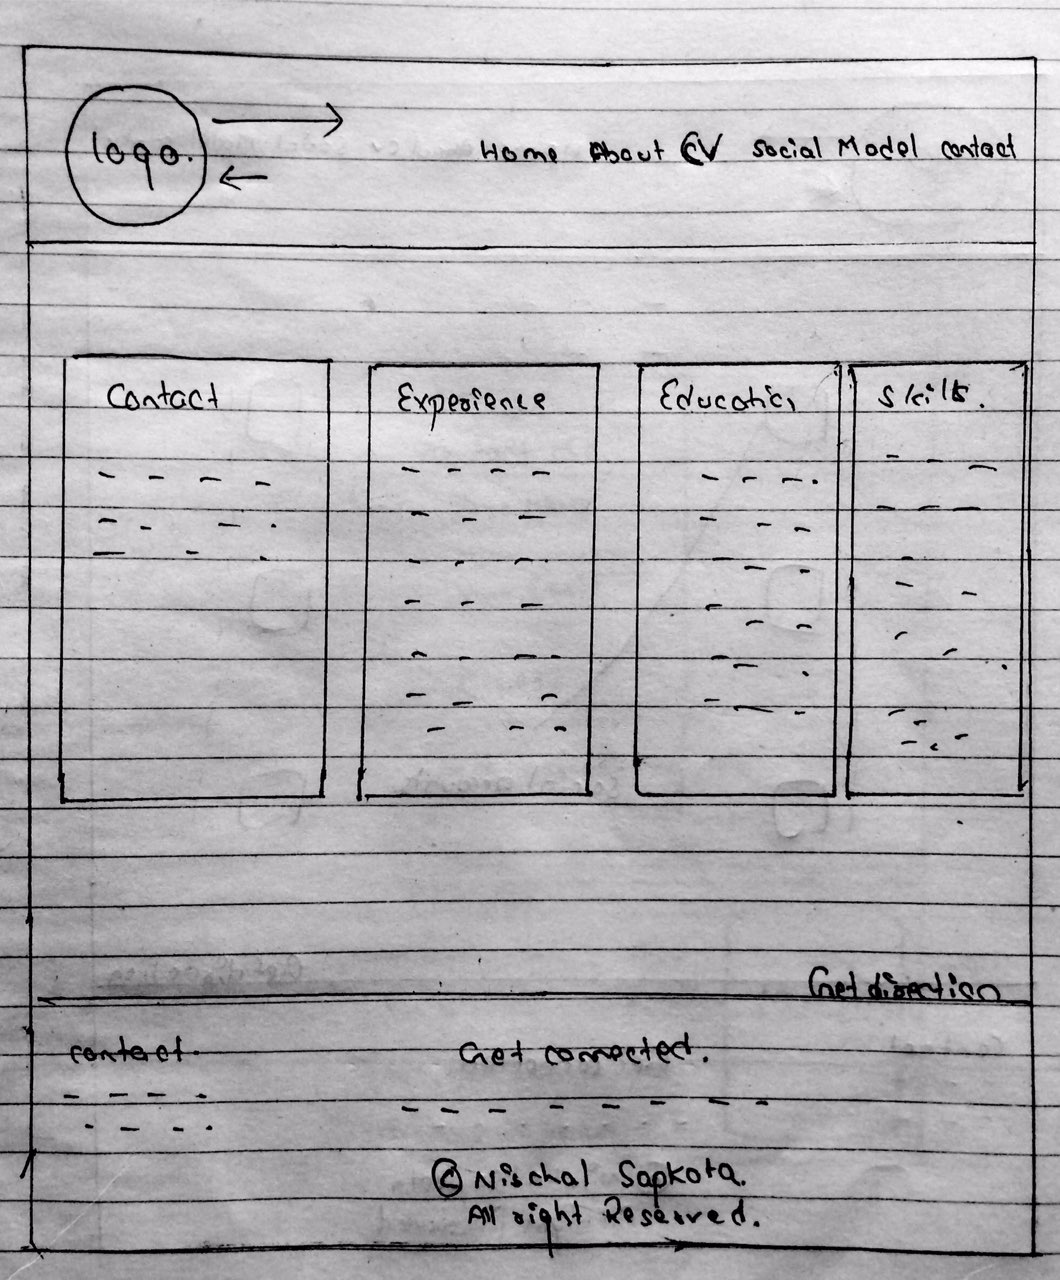 logo.
Home About CV Social Model contact
Contact
Experience
Education
Skills.
Get direction
contact.
Get connected.
© Nischal Sapkota.
All right Reserved.